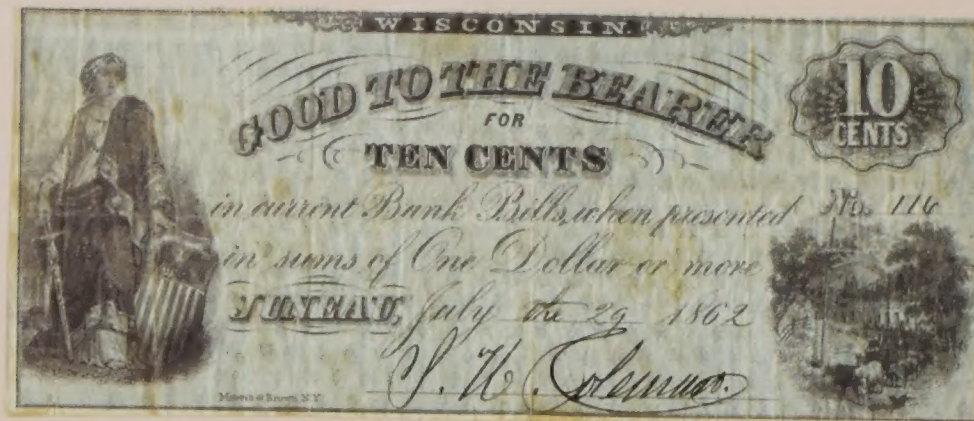 WISCONSIN.
GOOD TO THE BEARER
FOR
TEN CENTS
10
CENTS
in current Bank Bills, when presented No. 116
in sums of One Dollar or more
JUNEAU, July the 29 1862
S. H. Coleman.
N.Y.